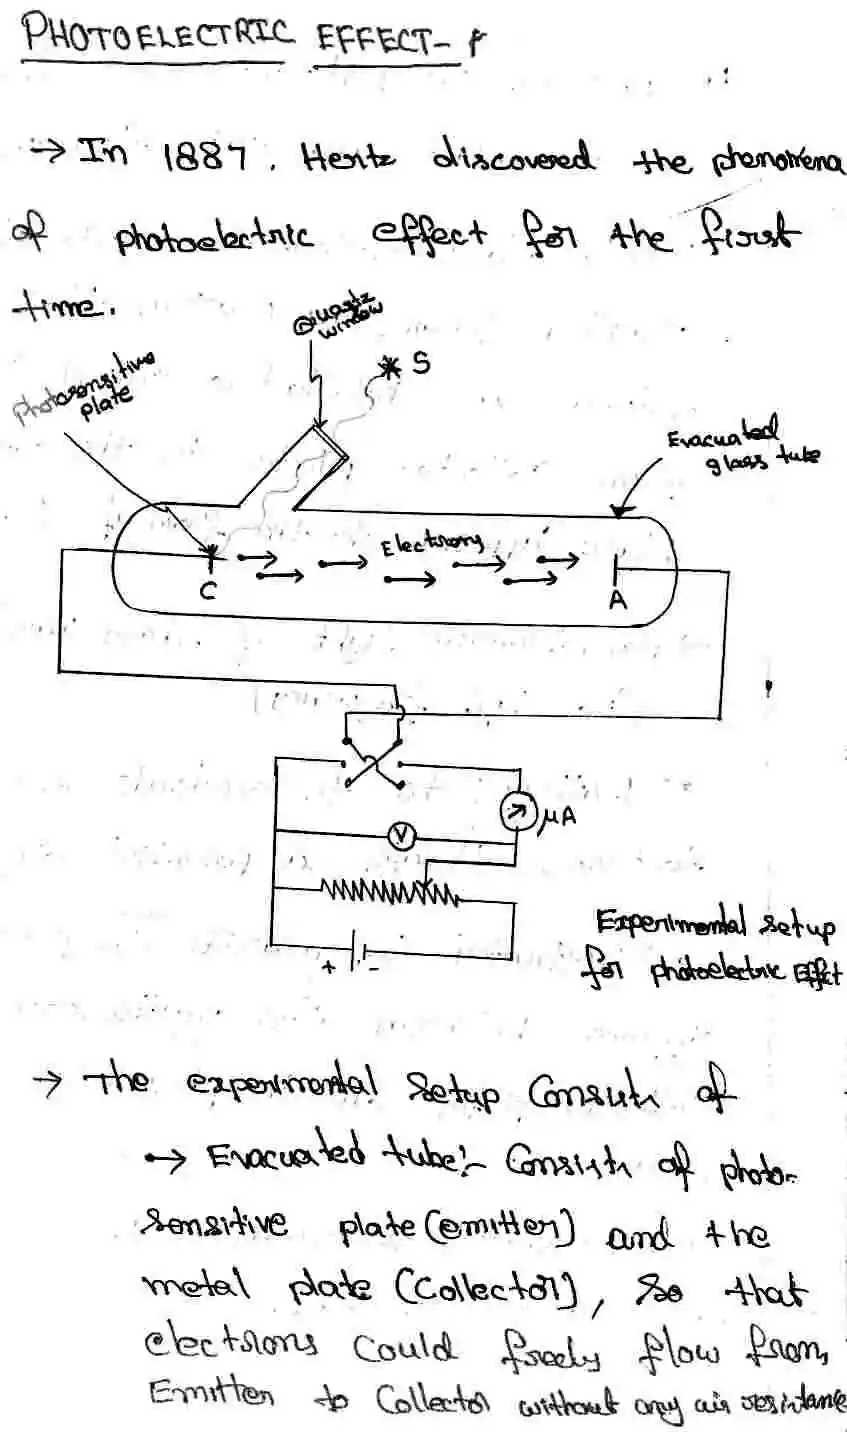 PHOTOELECTRIC EFFECT-
→ In 1887, Hertz discovered the phenomena
of photoelectric effect for the first
time.
Quartz
window
S
photosensitive
plate
Evacuated
glass tube
Electrons
C
A
μA
V
+ -
Experimental setup
for photoelectric Effect
→ The experimental setup Consists of
•→ Evacuated tube:- Consists of photo-
sensitive plate (emitter) and the
metal plate (Collector), so that
electrons could freely flow from
Emitter to Collector without any air resistance